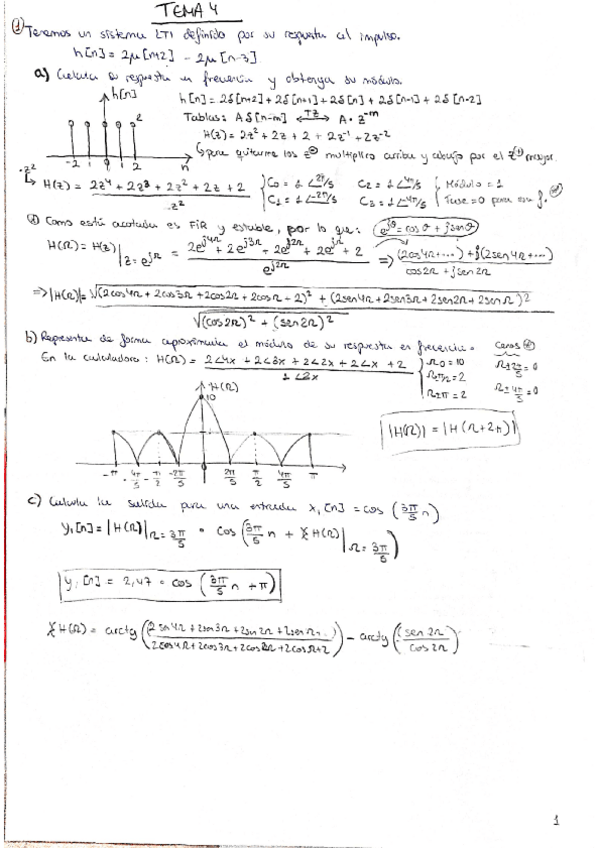 TEMA 4
① Tenemos un sistema LTI definido por su respuesta al impulso.
h[n] = 2μ[n+2] - 2μ[n-3]
a) Calcula la respuesta en frecuencia y obtenga su módulo.
h[n]
h[n] = 2δ[n+2] + 2δ[n+1] + 2δ[n] + 2δ[n-1] + 2δ[n-2]
Tablas: A δ[n-m] ⟷TZ A · z^-m
H(z) = 2z² + 2z + 2 + 2z^-1 + 2z^-2
-2 1 1 2 n
↳ para quitarme los z⊖ multiplico arriba y abajo por el z⊖ mayor.
·z²
↳ H(z) = (2z⁴ + 2z³ + 2z² + 2z + 2) / z²
C₀ = 1∠2π/5 C₂ = 1∠4π/5 Módulo = 1
C₁ = 1∠-2π/5 C₃ = 1∠-4π/5 Fase = 0 para
Como está acotada es FIR y estable, por lo que: e^jθ = cosθ + jsenθ
H(Ω) = H(z)|z = e^jΩ = (2e^j4Ω + 2e^j3Ω + 2e^j2Ω + 2e^jΩ + 2) / e^j2Ω => ((2cos4Ω+...) + j(2sen4Ω+...)) / (cos2Ω + jsen2Ω)
=> |H(Ω)| = √((2cos4Ω + 2cos3Ω + 2cos2Ω + 2cosΩ + 2)² + (2sen4Ω + 2sen3Ω + 2sen2Ω + 2senΩ)²) / √((cos2Ω)² + (sen2Ω)²)
b) Representa de forma aproximada el módulo de su respuesta en frecuencia. Ceros
En la calculadora: H(Ω) = (2∠4x + 2∠3x + 2∠2x + 2∠x + 2) / 1∠2x
Ω0 = 10 Ω±2π/5 = 0
Ωπ/2 = 2 Ω±4π/5 = 0
Ω±π = 2
H(Ω)
10
|H(Ω)| = |H(Ω+2π)|
-π -4π/5 -π/2 -2π/5 0 2π/5 π/2 4π/5 π
c) Calcula la salida para una entrada x₁[n] = cos(3π/5 n)
y₁[n] = |H(Ω)|Ω = 3π/5 · cos(3π/5 n + ∡H(Ω)|Ω = 3π/5)
y₁[n] = 2,47 · cos(3π/5 n + π)
∡H(Ω) = arctg((2sen4Ω + 2sen3Ω + 2sen2Ω + 2senΩ) / (2cos4Ω + 2cos3Ω + 2cos2Ω + 2cosΩ + 2)) - arctg(sen2Ω / cos2Ω)
1